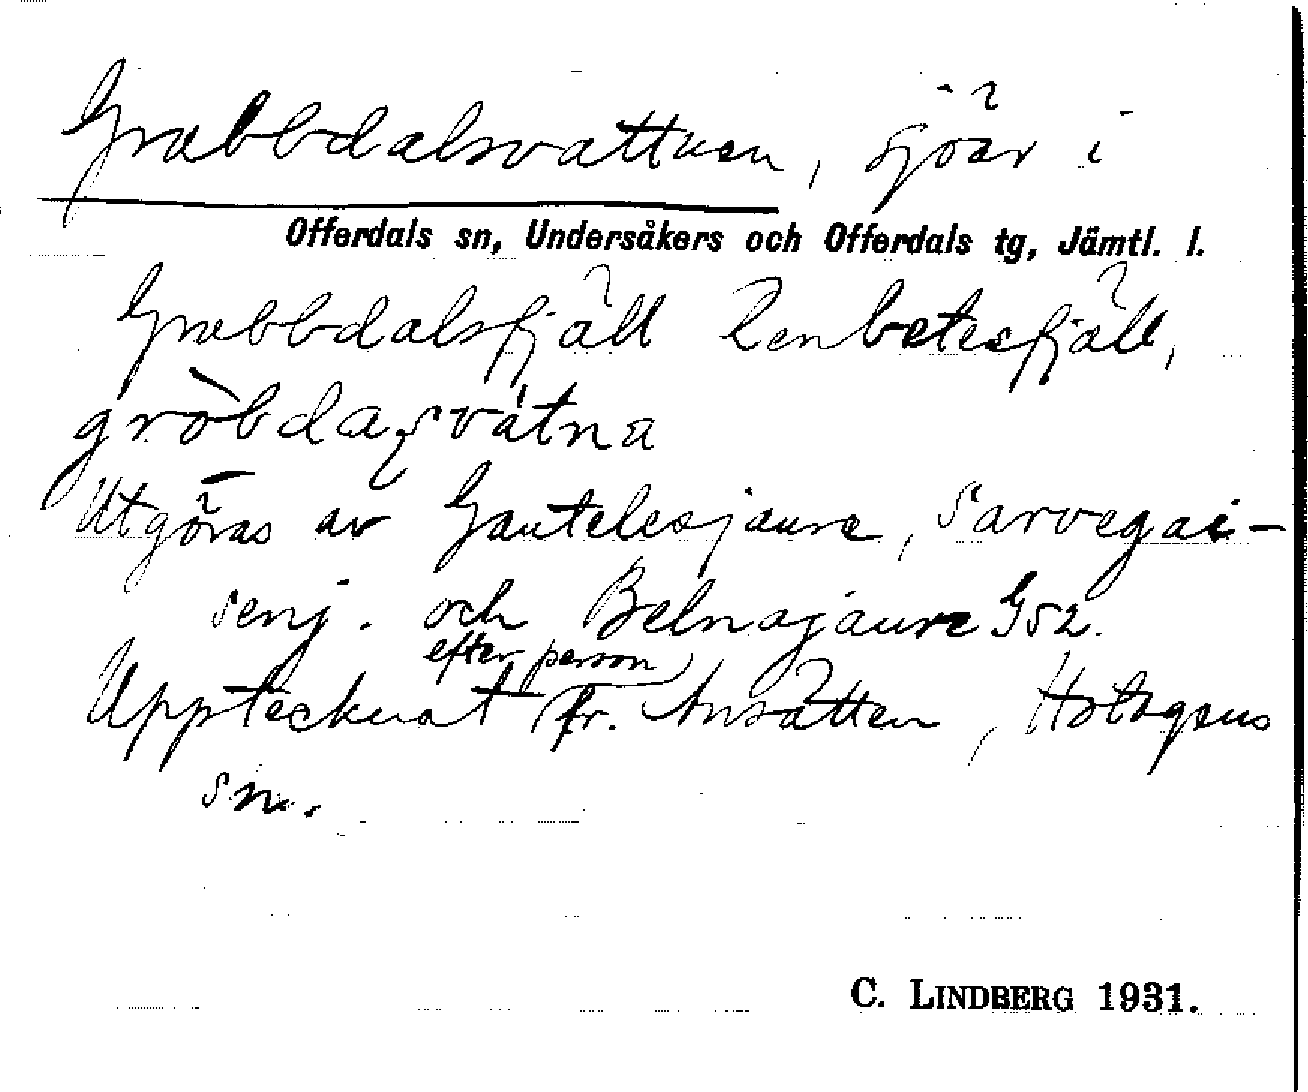 Grabbdalsvattnen, sjöar i
Offerdals sn, Undersåkers och Offerdals tg, Jämtl. l.
Grabbdalsfjäll Renbetesfjäll,
gròbdaɽsvátna
Utgöras av Gautelesjaure, Sarvegai-
senj. och Belnajaure G52.
efter person
Upptecknat fr. Ansätten, Hotagens
sn.
C. LINDBERG 1931.